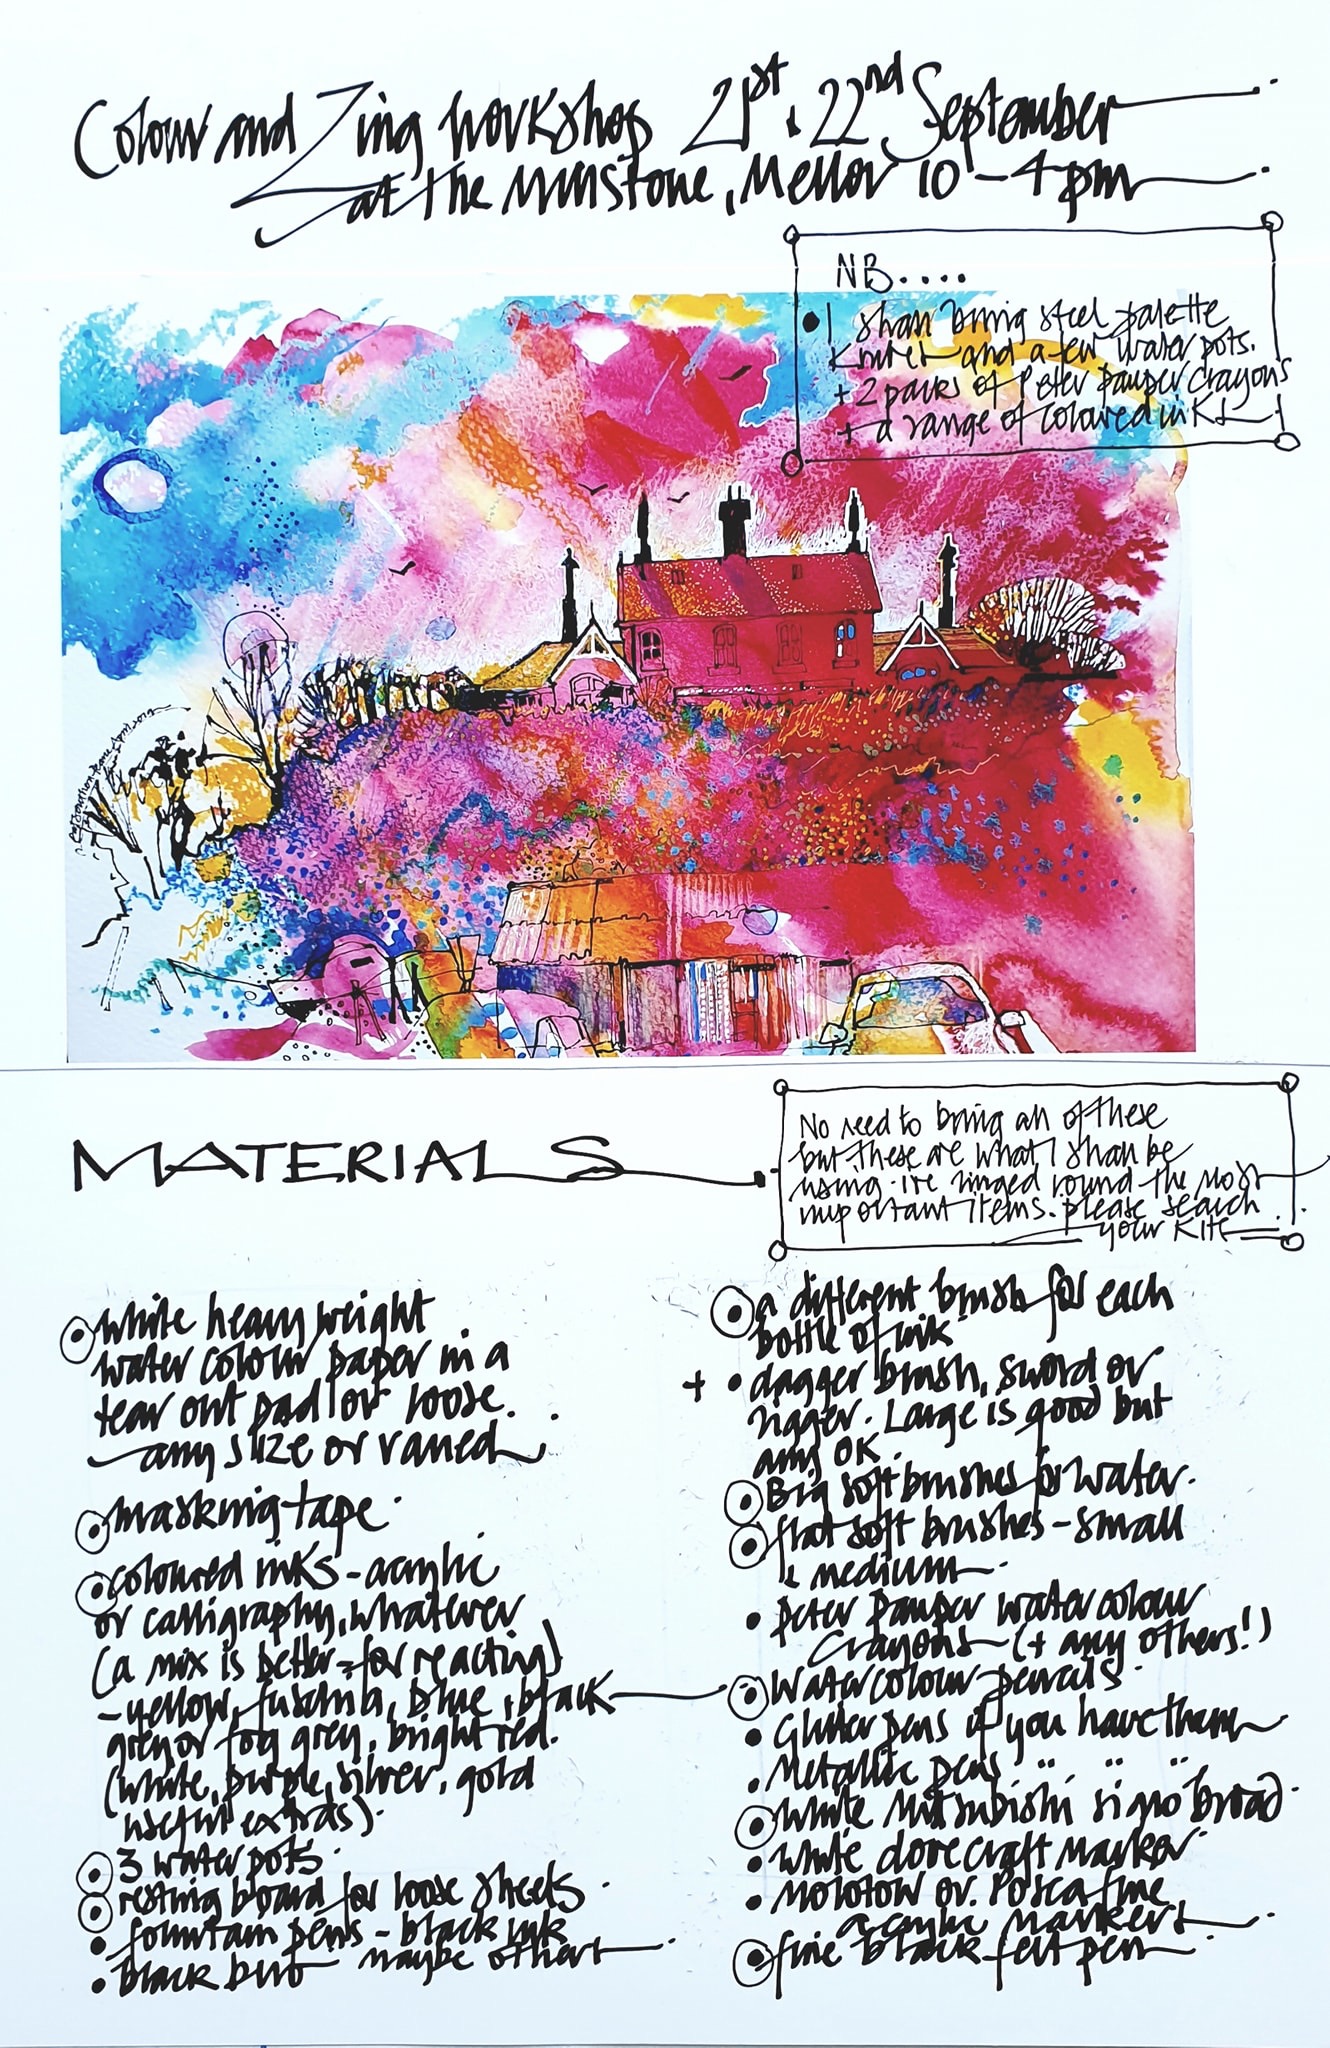 Colour and Zing workshop 21st & 22nd September
at the Millstone, Mellor 10-4pm
NB....
• I shall bring steel palette
knives and a few water pots.
+ 2 packs of Peter Pauper crayons
+ a range of coloured inks
MATERIALS
No need to bring all of these
but these are what I shall be
using. I've ringed round the most
important items. please search
your kits
• white heavy weight
water colour paper in a
tear out pad or loose.
any size or varied
• masking tape.
• coloured inks - acrylic
or calligraphy, whatever
(a mix is better - for reacting)
- yellow, fuschia, blue, black
grey or fog grey, bright red.
(white, purple, silver, gold
useful extras).
• 3 water pots.
• resting board for loose sheets.
• fountain pens - black ink
maybe others
• black biro
• a different brush for each
bottle of ink
+ • dagger brush, sword or
rigger. Large is good but
any OK.
• Big soft brushes for water.
• flat soft brushes - small
& medium
• peter pauper water colour
crayons (+ any others!)
• Watercolour pencils.
• Glitter pens if you have them
• Metallic pens " " "
• White Mitsubishi signo broad.
• White dovecraft marker.
• Molotow or Posca fine
acrylic markers
• fine black felt pen